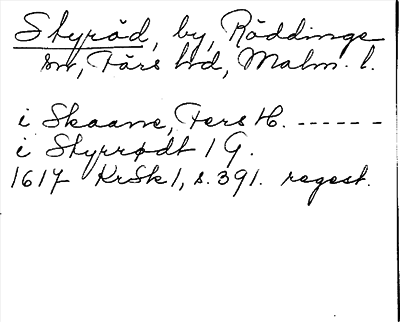 Styröd, by, Röddinge
sn, Färs hd, Malm. l.
i Skaane, Fers H. ------
i Styrrødt 1 G.
1617 KrSk 1, s. 391. regest.